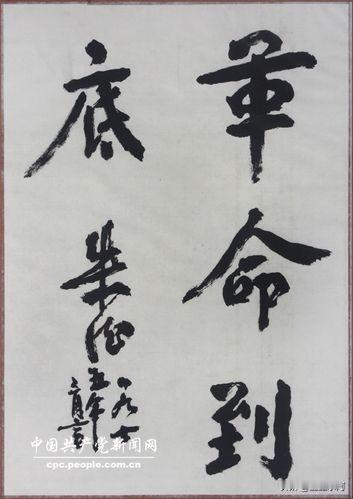 革命到
底
朱德
一九七
五年
三月六日
中国共产党新闻网
cpc.people.com.cn